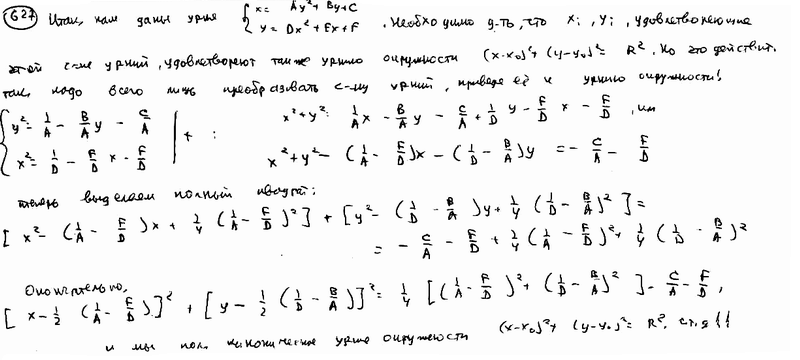 627 Итак, нам даны урия { x = Ay² + By + C
y = Dx² + Ex + F . Необходимо д-ть, что xᵢ, yᵢ, удовлетворяющие
этой с-ме урний, удовлетворяют также урнию окружности (x-x₀)² + (y-y₀)² = R². Но это действит.
так, надо всего лишь преобразовать с-му урний, приведя её к урнию окружности!
{ y² = 1/A - B/A y - C/A | + : x² + y² = 1/A x - B/A y - C/A + 1/D y - F/D x - F/D , или
x² = 1/D - F/D x - F/D | x² + y² - (1/A - F/D)x - (1/D - B/A)y = - C/A - F/D
теперь выделяем полный квадрат:
[ x² - (1/A - F/D)x + 1/4 (1/A - F/D)² ] + [ y² - (1/D - B/A)y + 1/4 (1/D - B/A)² ] =
= - C/A - F/D + 1/4 (1/A - F/D)² + 1/4 (1/D - B/A)²
Окончательно,
[ x - 1/2 (1/A - F/D) ]² + [ y - 1/2 (1/D - B/A) ]² = 1/4 [ (1/A - F/D)² + (1/D - B/A)² ] - C/A - F/D ,
и мы пол. каноническое урие окружности (x-x₀)² + (y-y₀)² = R²